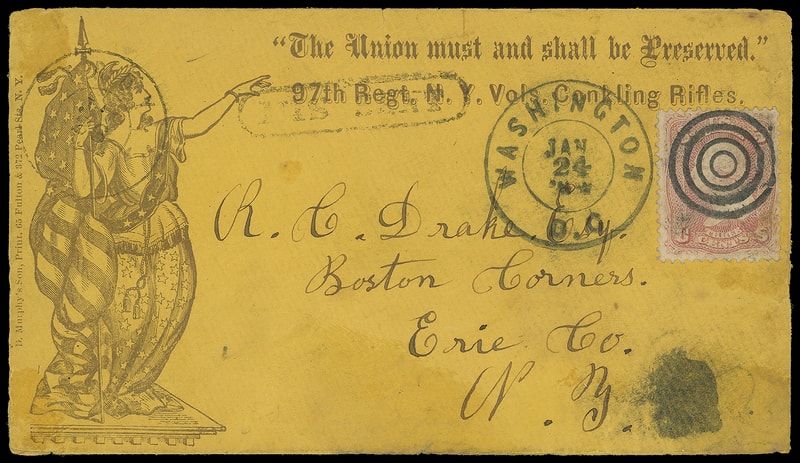 "The Union must and shall be Preserved."
97th Regt. N. Y. Vols. Conkling Rifles.
WASHINGTON
JAN
24
D.C.
R. C. Drake, Esq.
Boston Corners.
Erie Co.
N. Y.
CENTS
D. Murphy's Son, Print. 65 Fulton & 372 Pearl Sts. N. Y.